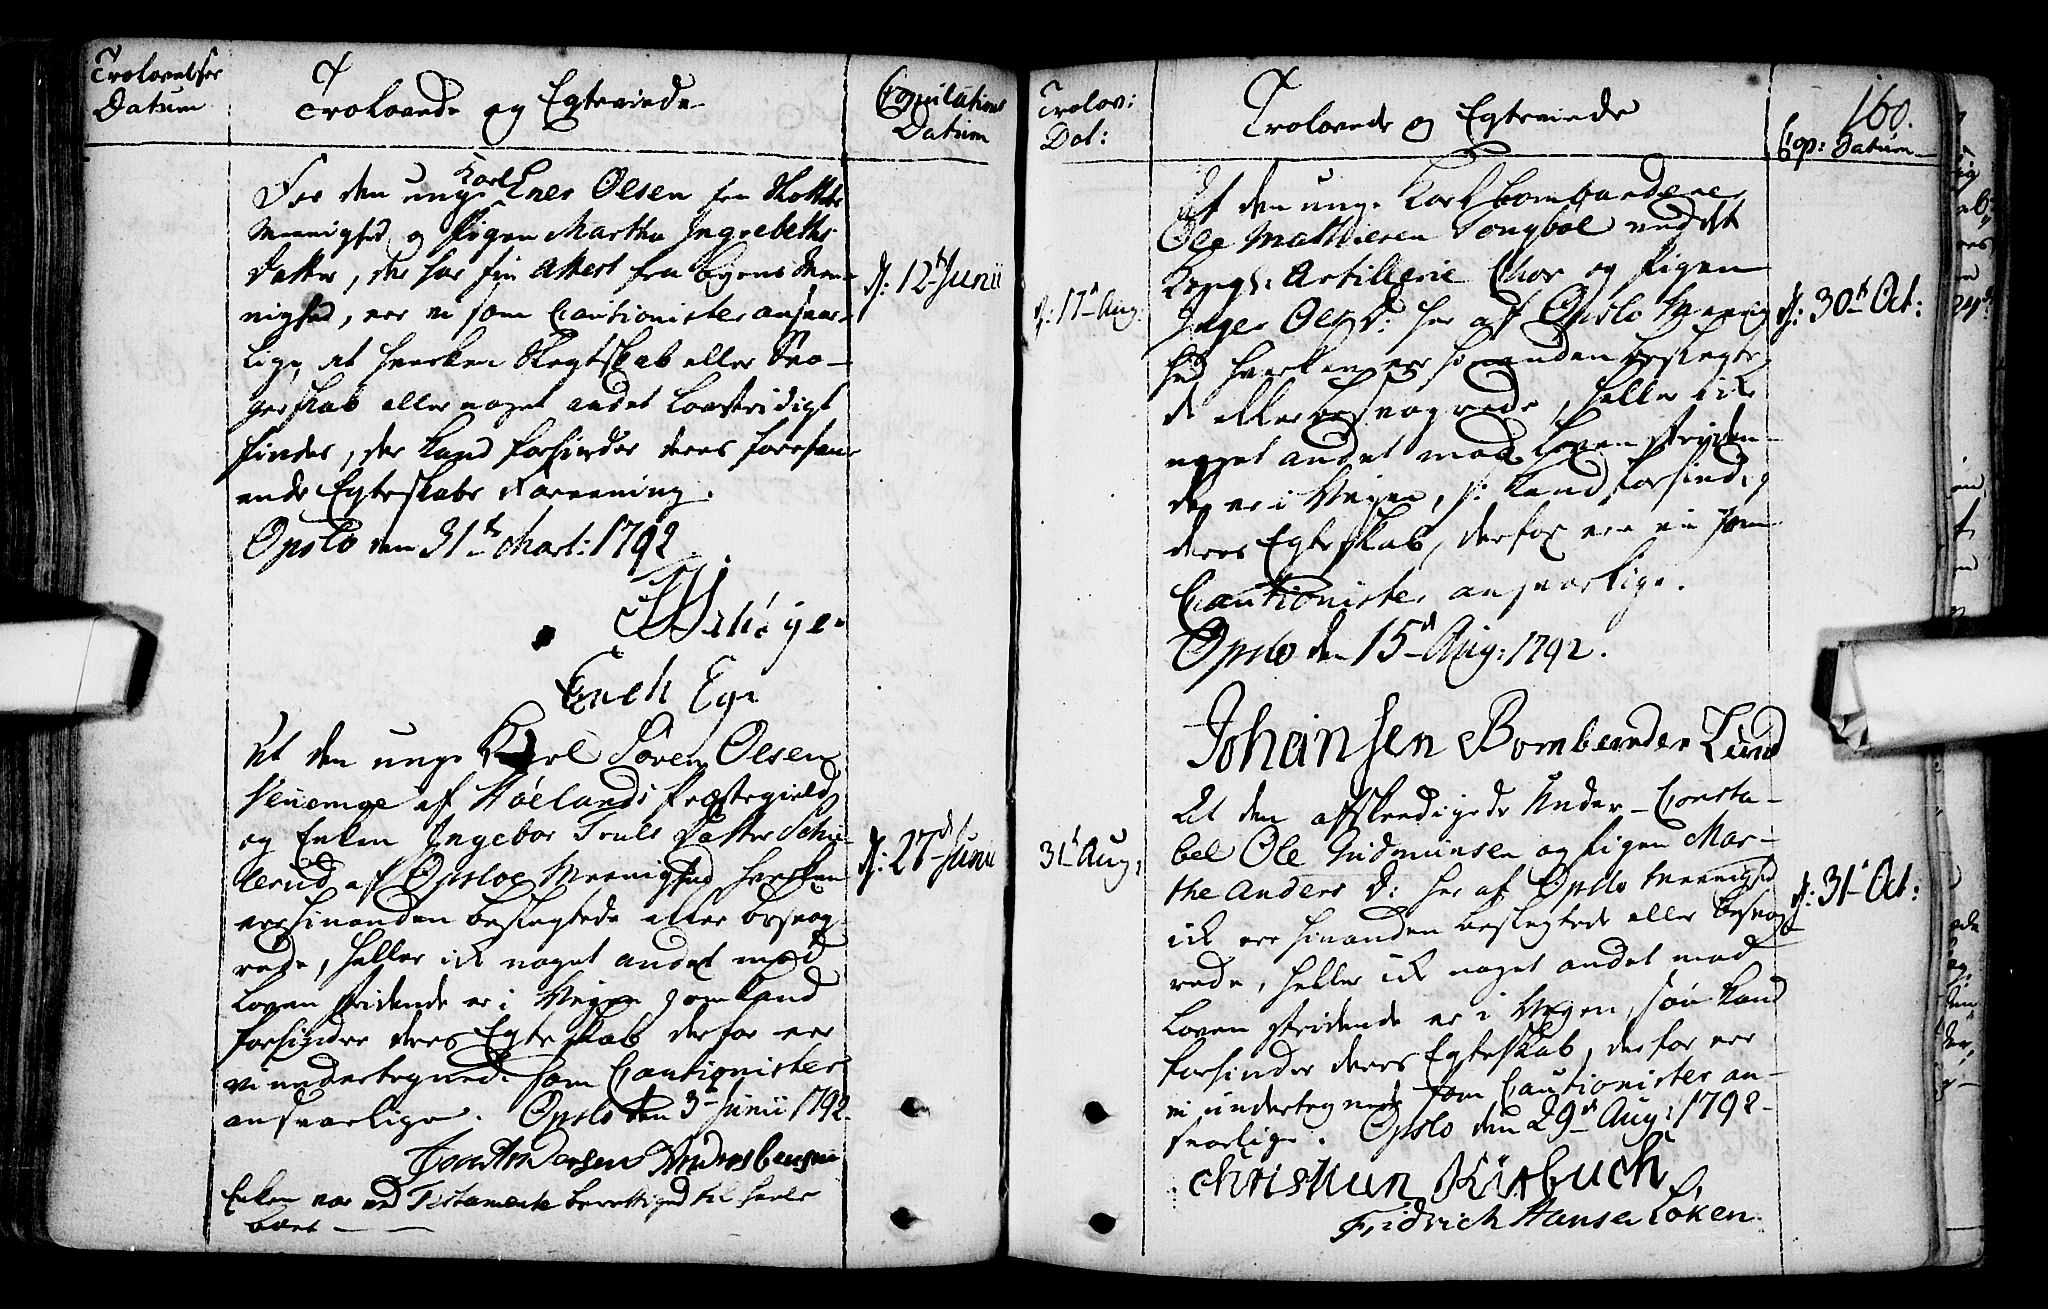 Trolovelses
Datum
Trolovede og Egteviede
Copulations
Datum
For den unge Karl Ener Olsen fra
Meenighed og Pigen Martha Ingebreths
Datter, der har sin Attest fra Byens Mee-
nighed, ere vi som Cautionister ansvar-
lige, at hverken Slegtskab eller Svo-
gerskab eller noget andet Lovstridigt
findes, der kand forhindre deres forehav-
ende Egteskabs Foreening.
Opslo den 31te Mart: 1792
d: 12t Junii
Erich Ege
At den unge Karl Søren Olsen
af Hølands Præstegield
og Enken Ingebor Truls Datter Schu-
lerud af Opsloe Meenighed hverken
ere hinanden beslegtede eller besvog-
rede, heller ik noget andet mod
Loven stridende er i Vejen som kand
forhindre deres Egteskab derfor ere
vi undertegnede som Cautionister
ansvarlige. Opslo den 3d Junii 1792
d: 27d Junii
Andersen Andres
Enken var ved Testamente berettiged til heele
boet
Trolov:
Dat:
Trolovede og Egteviede
160.
Cop: Datum
At den unge Karl bombardeer
Ole Mathiesen Tongbøl ved det
Kongl: Artillerie Chor og Pigen
d: 17d Aug:
Inger Oels D: her af Opslo Meenig
d: 30th Oct:
hed hverken ere hinanden beslegte-
de eller besvogrede, heller ik
noget andet mod Loven stryden-
de er i Vejen, der kand forhind:
deres Egteskab, derfor ere vi som
Cautionister ansvarlige.
Opslo den 15d Aug: 1792.
Johansen Bomberder Lund
At den afskeedigede Under-Consta-
bel Ole Gudmunsen og Pigen Mar-
31t Aug:
the Anders D: her af Opslo Meenighed
d: 31t Oct:
ik ere hinanden beslegtede eller besvog
rede, heller ik noget andet mod
Loven stridende er i Vejen, som kand
forhindre deres Egteskab, derfor ere
vi undertegnede som Cautionister an-
svarlige. Opslo den 29d Aug: 1792
Christian Kirbuch
Fridrich Hansen Løken